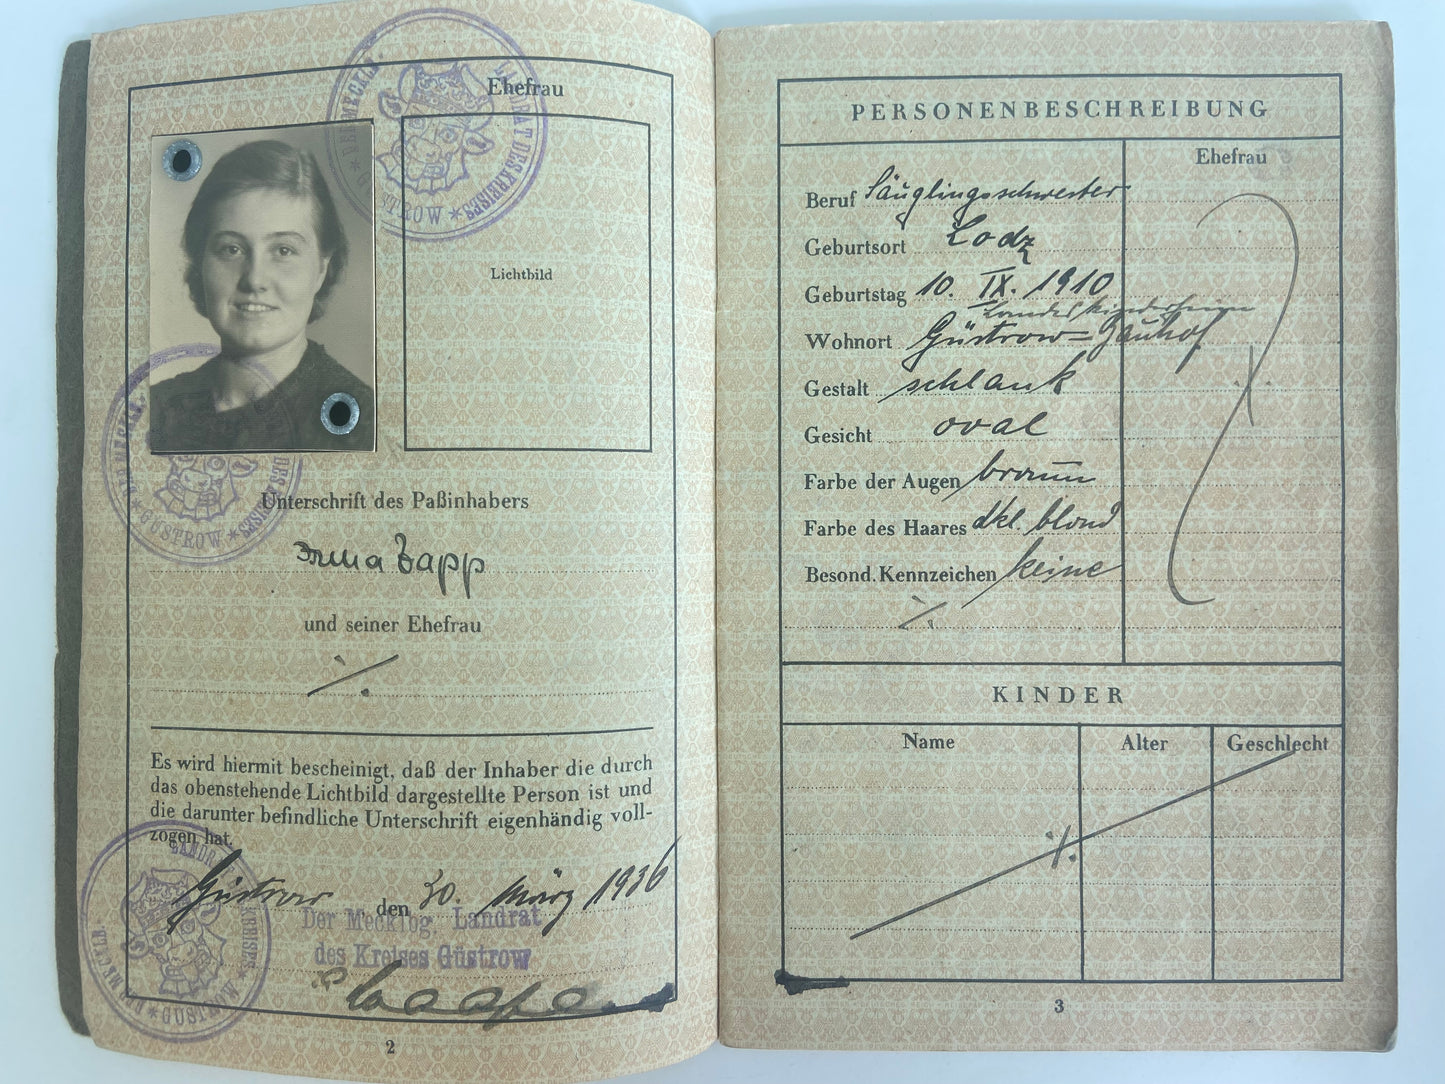 Ehefrau
Lichtbild
LANDRAT DES KREISES
GÜSTROW
Unterschrift des Paßinhabers
Irma Zapp
und seiner Ehefrau
·/.
Es wird hiermit bescheinigt, daß der Inhaber die durch
das obenstehende Lichtbild dargestellte Person ist und
die darunter befindliche Unterschrift eigenhändig voll-
zogen hat.
Güstrow, den 30. März 1936
Der Mecklbg. Landrat
des Kreises Güstrow
2
PERSONENBESCHREIBUNG
Ehefrau
Beruf Säuglingsschwester
Geburtsort Lodz
Geburtstag 10. IX. 1910
Landeskinderheim
Wohnort Güstrow=
Gestalt schlank
Gesicht oval
Farbe der Augen braun
Farbe des Haares dkl. blond
Besond. Kennzeichen keine
·/.
KINDER
Name Alter Geschlecht
·/.
3